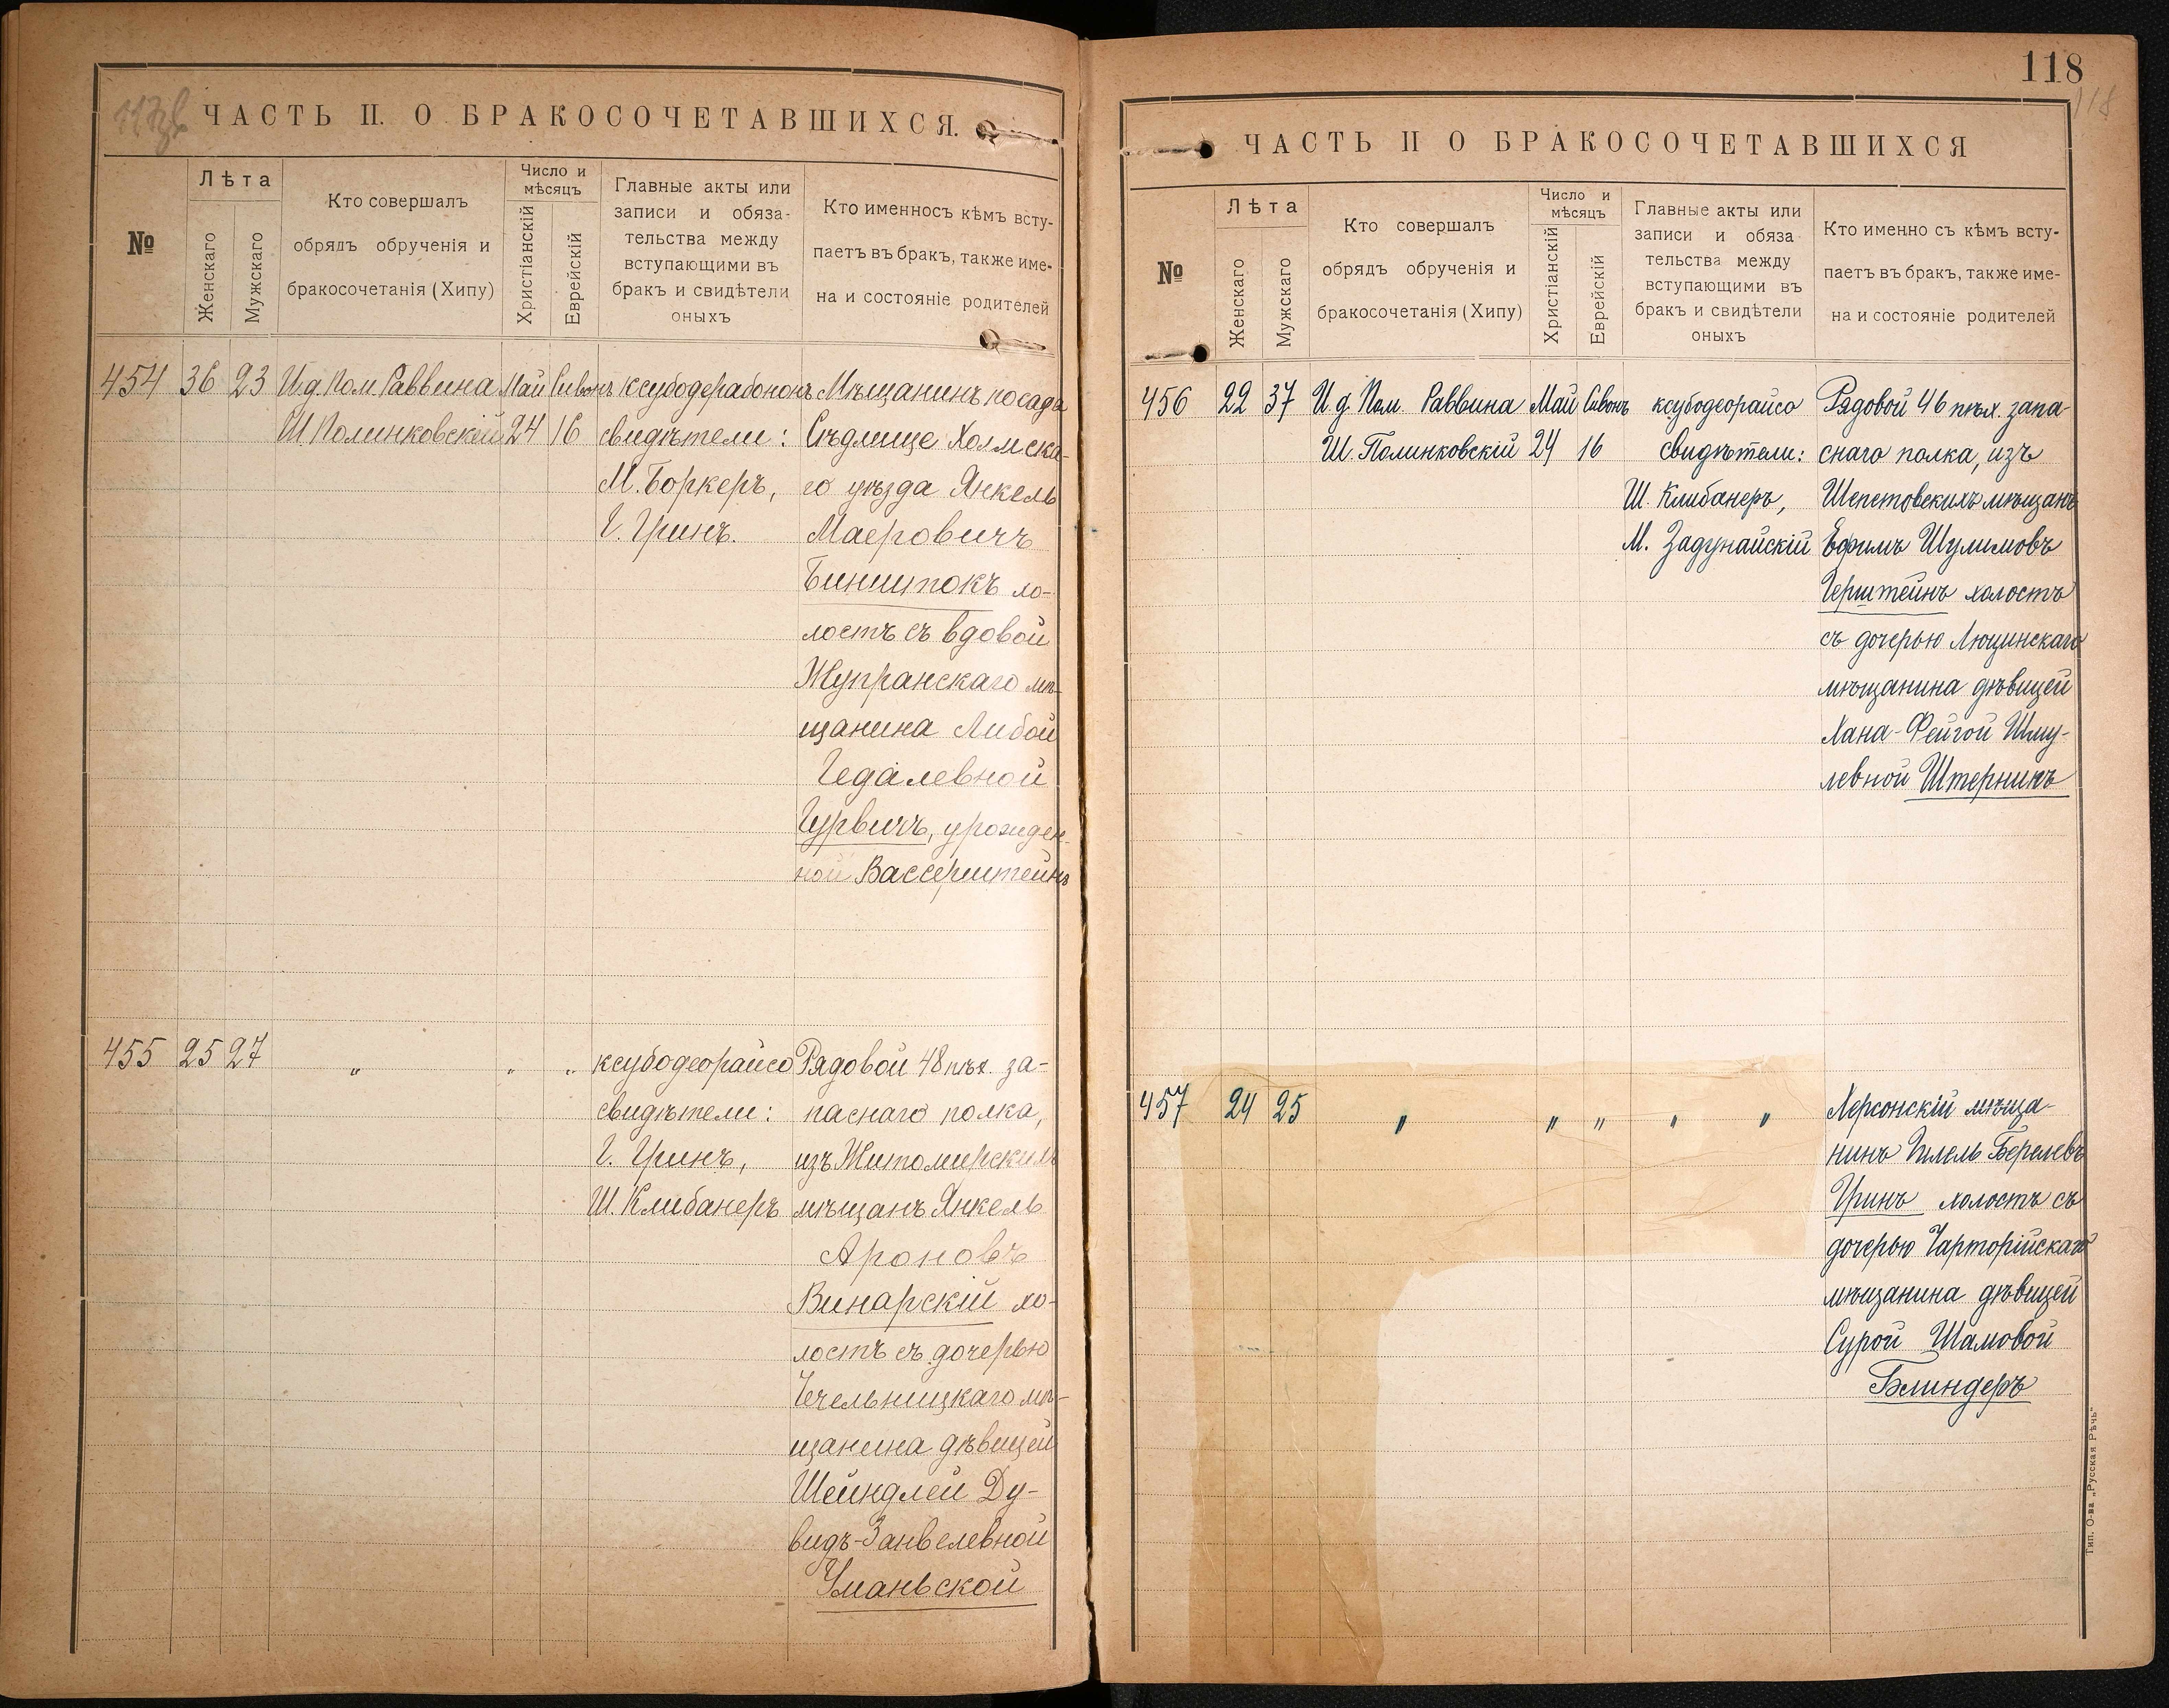 ЧАСТЬ II. О БРАКОСОЧЕТАВШИХСЯ.
№
Лѣта
Женскаго
Мужскаго
Кто совершалъ
обрядъ обрученія и
бракосочетанія (Хипу)
Число и
мѣсяцъ
Христіанскій
Еврейскій
Главные акты или
записи и обяза-
тельства между
вступающими въ
бракъ и свидѣтели
оныхъ
Кто именносъ кѣмъ всту-
паетъ въ бракъ, также име-
на и состояніе родителей
454 36 23 И.д. Пом. Раввина Май Сивонъ ксубодерабононъ Мѣщанинъ посада
Ш Полинковскій 24 16 свидѣтели: Сѣдлище Холмска-
М. Боркеръ, го уѣзда Янкель
Г. Гринъ. Маеровичъ
Бинштокъ хо-
лостъ съ вдовой
Жупранскаго мѣ-
щанина Либой
Гедалевной
Гурвичъ, урожден-
ной Вассерштейнъ
455 25 27 " " " ксубодеорайсо Рядовой 48 пѣх. за-
свидѣтели: паснаго полка,
Г. Гринъ, изъ Житомирскихъ
Ш. Клибанеръ мѣщанъ Янкель
Ароновъ
Винарскій хо-
лостъ съ дочерью
Чечельницкаго мѣ-
щанина дѣвицей
Шейндлей Ду-
видъ-Занвелевной
Уманьской
118
118
ЧАСТЬ II О БРАКОСОЧЕТАВШИХСЯ
№
Лѣта
Женскаго
Мужскаго
Кто совершалъ
обрядъ обрученія и
бракосочетанія (Хипу)
Число и
мѣсяцъ
Христіанскій
Еврейскій
Главные акты или
записи и обяза
тельства между
вступающими въ
бракъ и свидѣтели
оныхъ
Кто именно съ кѣмъ всту-
паетъ въ бракъ, также име-
на и состояніе родителей
456 22 37 И.д. Пом. Раввина Май Сивонъ ксубодеорайсо Рядовой 46 пѣх. запа-
Ш. Полинковскій 24 16 свидѣтели: снаго полка, изъ
Ш. Клибанеръ, Шепетовскихъ мѣщанъ
М. Задунайскій Ефимъ Шулимовъ
Герштейнъ холостъ
съ дочерью Люцинскаго
мѣщанина дѣвицей
Хана-Фейгой Шму-
левной Штерникъ
457 24 25 " " " " " Херсонскій мѣща-
нинъ Гилель Берелевъ
Гринъ холостъ съ
дочерью Чарторійскаго
мѣщанина дѣвицей
Сурой Шамовой
Блиндеръ
Тип. О-ва „Русская Рѣчь"